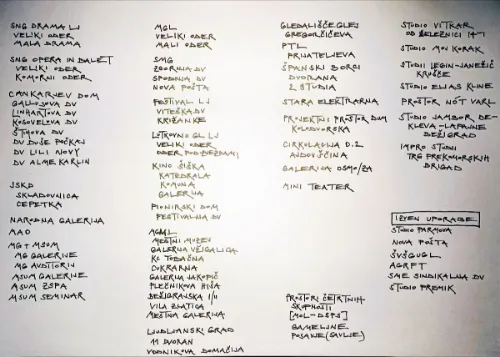 SNG DRAMA LJ
VELIKI ODER
MALA DRAMA
SNG OPERA IN BALET
VELIKI ODER
KOMORNI ODER
CANKARJEV DOM
GALLUSOVA DV
LINHARTOVA DV
KOSOVELOVA DV
ŠTIHOVA DV
DV DUŠE POČKAJ
DV LILI NOVY
DV ALME KARLIN
JSKD
SKLADOVNICA
CEPETKA
NARODNA GALERIJA
MAO
MG+MSUM
MG GALERIJE
MG AVDITORIJ
MSUM GALERIJE
MSUM ŽSPA
MSUM SEMINAR
MGL
VELIKI ODER
MALI ODER
SMG
ZGORNJA DV
SPODNJA DV
NOVA POŠTA
FESTIVAL LJ
VITEŠKA DV
KRIŽANKE
LUTKOVNO GL LJ
VELIKI ODER
ODER POD ZVEZDAMI
KINO ŠIŠKA
KATEDRALA
KOMUNA
GALERIJA
PIONIRSKI DOM
FESTIVALNA DV
MGML
MESTNI MUZEJ
GALERIJA VŽIGALICA
KC TOBAČNA
CUKRARNA
GALERIJA JAKOPIČ
PLEČNIKOVA HIŠA
BEŽIGRAJSKA 1/11
VILA ZLATICA
MESTNA GALERIJA
LJUBLJANSKI GRAD
11 DVORAN
VODNIKOVA DOMAČIJA
GLEDALIŠČE GLEJ
GREGORČIČEVA
PTL
PRIJATELJEVA
ŠPANSKI BORCI
DVORANA
2 STUDIA
STARA ELEKTRARNA
PROJEKTNI PROSTOR DUM
KOLODVORSKA
CIRKULACIJA D.2
ANDOVŠČINA
GALERIJA OSMO/ZA
MINI TEATER
PROSTORI ČETRTNIH
SKUPNOSTI
[MOL-DSPS]
GAMELJNE
POSAVJE (SAVLJE)
STUDIO VITKAR
OB ŽELEZNICI 14
STUDIO MOJ KORAK
STUDIJ LEGIN-JANEŽIČ
KRIŠČE
STUDIO ELIAS KLINE
PROSTOR NOT VARL
STUDIO JAMBOR DE-
KLEVA-LAPAJNE
DEŽIGRAD
IMPRO STUDIJ
TRG PREKOMORSKIH
BRIGAD
IZVEN UPORABE
STUDIO PARMOVA
NOVA POŠTA
ŠVŠGUGL
AGRFT
SME SINDIKALNA DV
STUDIO PREMIK